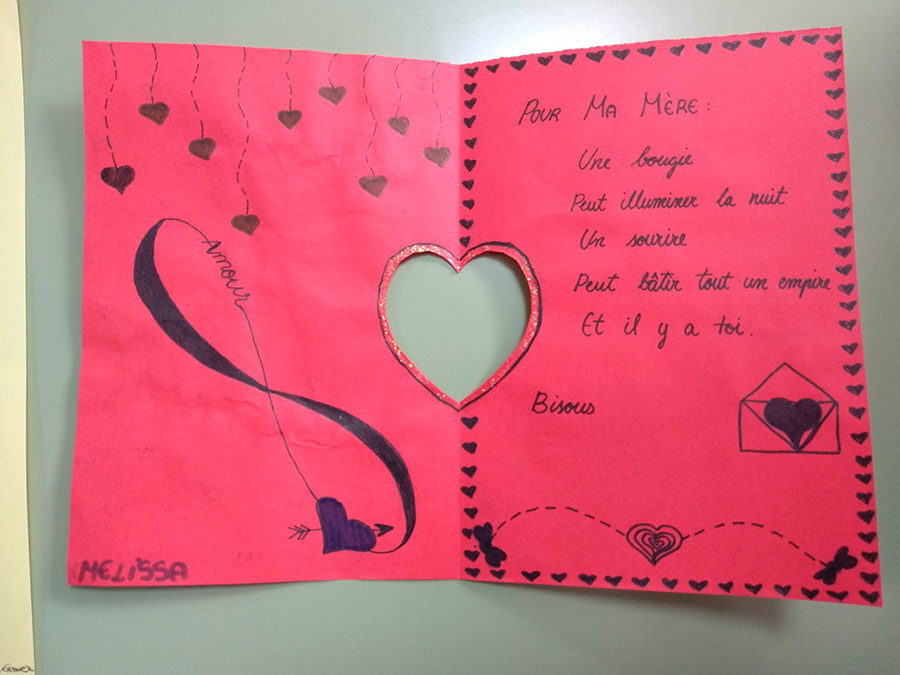 Amour
MELISSA
POUR MA MÈRE :
Une bougie
Peut illuminer la nuit
Un sourire
Peut bâtir tout un empire
Et il y a toi.
Bisous